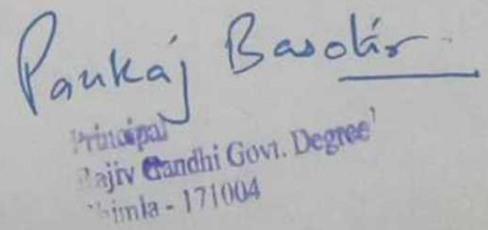 Pankaj Basotia
Principal
Rajiv Gandhi Govt. Degree
Shimla - 171004